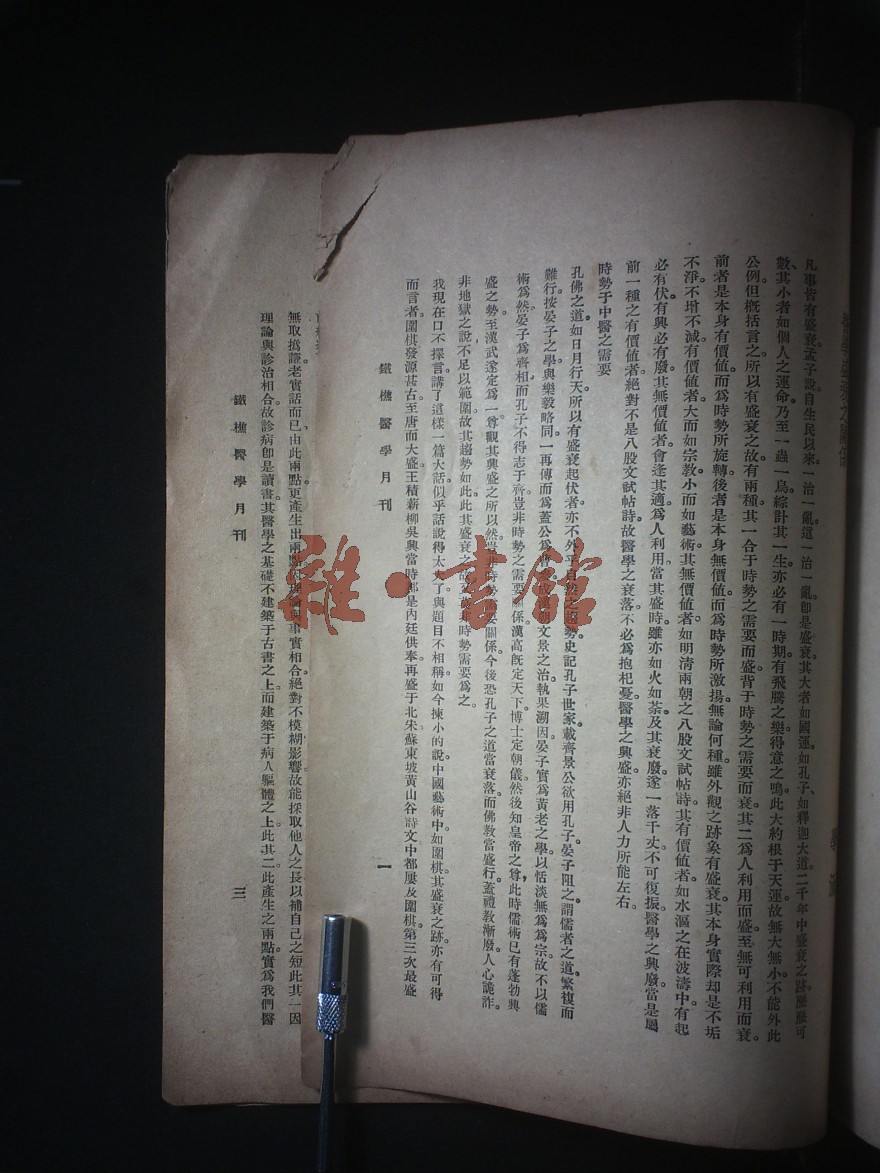 凡事皆有盛衰。孟子說。自生民以來。一治一亂。這一治一亂。卽是盛衰。其大者如國運。如孔子、如釋迦大道二千年中盛衰之跡。歷歷可
數、其小者如個人之運命。乃至一蟲一鳥。綜計其一生。亦必有一時期。有飛騰之樂。得意之鳴。此大約根于天運。故無大無小。不能外此
公例。但槪括言之。所以有盛衰之故。有兩種。其一合于時勢之需要而盛。背于時勢之需要而衰。其二爲人利用而盛。至無可利用而衰。
前者是本身有價値。而爲時勢所旋轉。後者是本身無價値。而爲時勢所激揚。無論何種。雖外觀之跡象有盛衰。其本身實際却是不垢
不淨。不增不減。有價値者。大而如宗教。小而如藝術。其無價値者。如明清兩朝之八股文試帖詩。其有價値者。如水漚之在波濤中。有起
必有伏。有興必有廢。其無價値者。會逢其適。爲人利用。當其盛時。雖亦如火如荼。及其衰廢。遂一落千丈。不可復振。醫學之興廢。當是屬
前一種之有價値者。絕對不是八股文試帖詩。故醫學之衰落。不必爲抱杞憂。醫學之興盛。亦絕非人力所能左右。
時勢于中醫之需要
孔佛之道。如日月行天。所以有盛衰起伏者。亦不外乎自然之趨勢。史記孔子世家。載齊景公欲用孔子。晏子阻之。謂儒者之道。繁複而
難行。按晏子之學。與樂毅略同。一再傳而爲蓋公爲曹 文景之治。執果溯因。晏子實爲黃老之學。以恬淡無爲爲宗。故不以儒
術爲然。晏子爲齊相。而孔子不得志于齊。豈非時勢之需要關係。漢高旣定天下。博士定朝儀。然後知皇帝之尊。此時儒術已有蓬勃興
盛之勢。至漢武遂定爲一尊。觀其興盛之所以然。豈非時勢需要關係。今後恐孔子之道當衰落。而佛教當盛行。蓋禮教漸廢。人心詭詐。
非地獄之說不足以範圍。故其趨勢如此。此其盛衰之故。又豈非時勢需要爲之。
我現在口不擇言。講了這樣一篇大話。似乎話說得太大了。與題目不相稱。如今揀小的說。中國藝術中如圍棋。其盛衰之跡。亦有可得
而言者。圍棋發源甚古。至唐而大盛。王積薪柳吳興。當時都是內廷供奉。再盛于北宋。蘇東坡黃山谷詩文中。都屢及圍棋。第三次最盛
鐵樵醫學月刊
一
無取撝謙。老實話而已。由此兩點。更產生出兩點。因理論與事實相合。絕對不模糊影響。故能採取他人之長。以補自己之短。此其一。因
理論與診治相合。故診病卽是讀書。其醫學之基礎。不建築于古書之上。而建築于病人軀體之上。此其二。此產生之兩點。實爲我們醫
鐵樵醫學月刊
三
雜·書館